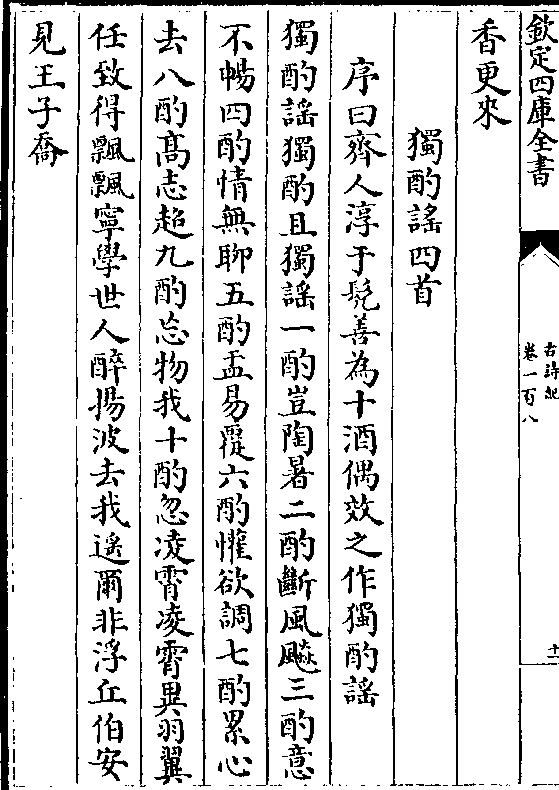 欽定四庫全書
古詩紀
卷一百八
十
香更來
獨酌謠四首
序曰齊人淳于髡善為十酒偶效之作獨酌謠
獨酌謠獨酌且獨謠一酌豈陶暑二酌斷風飇三酌意
不暢四酌情無聊五酌盂易覆六酌懽欲調七酌累心
去八酌高志超九酌忘物我十酌忽凌霄凌霄異羽翼
任致得飄飄寧學世人醉揚波去我遙爾非浮丘伯安
見王子喬